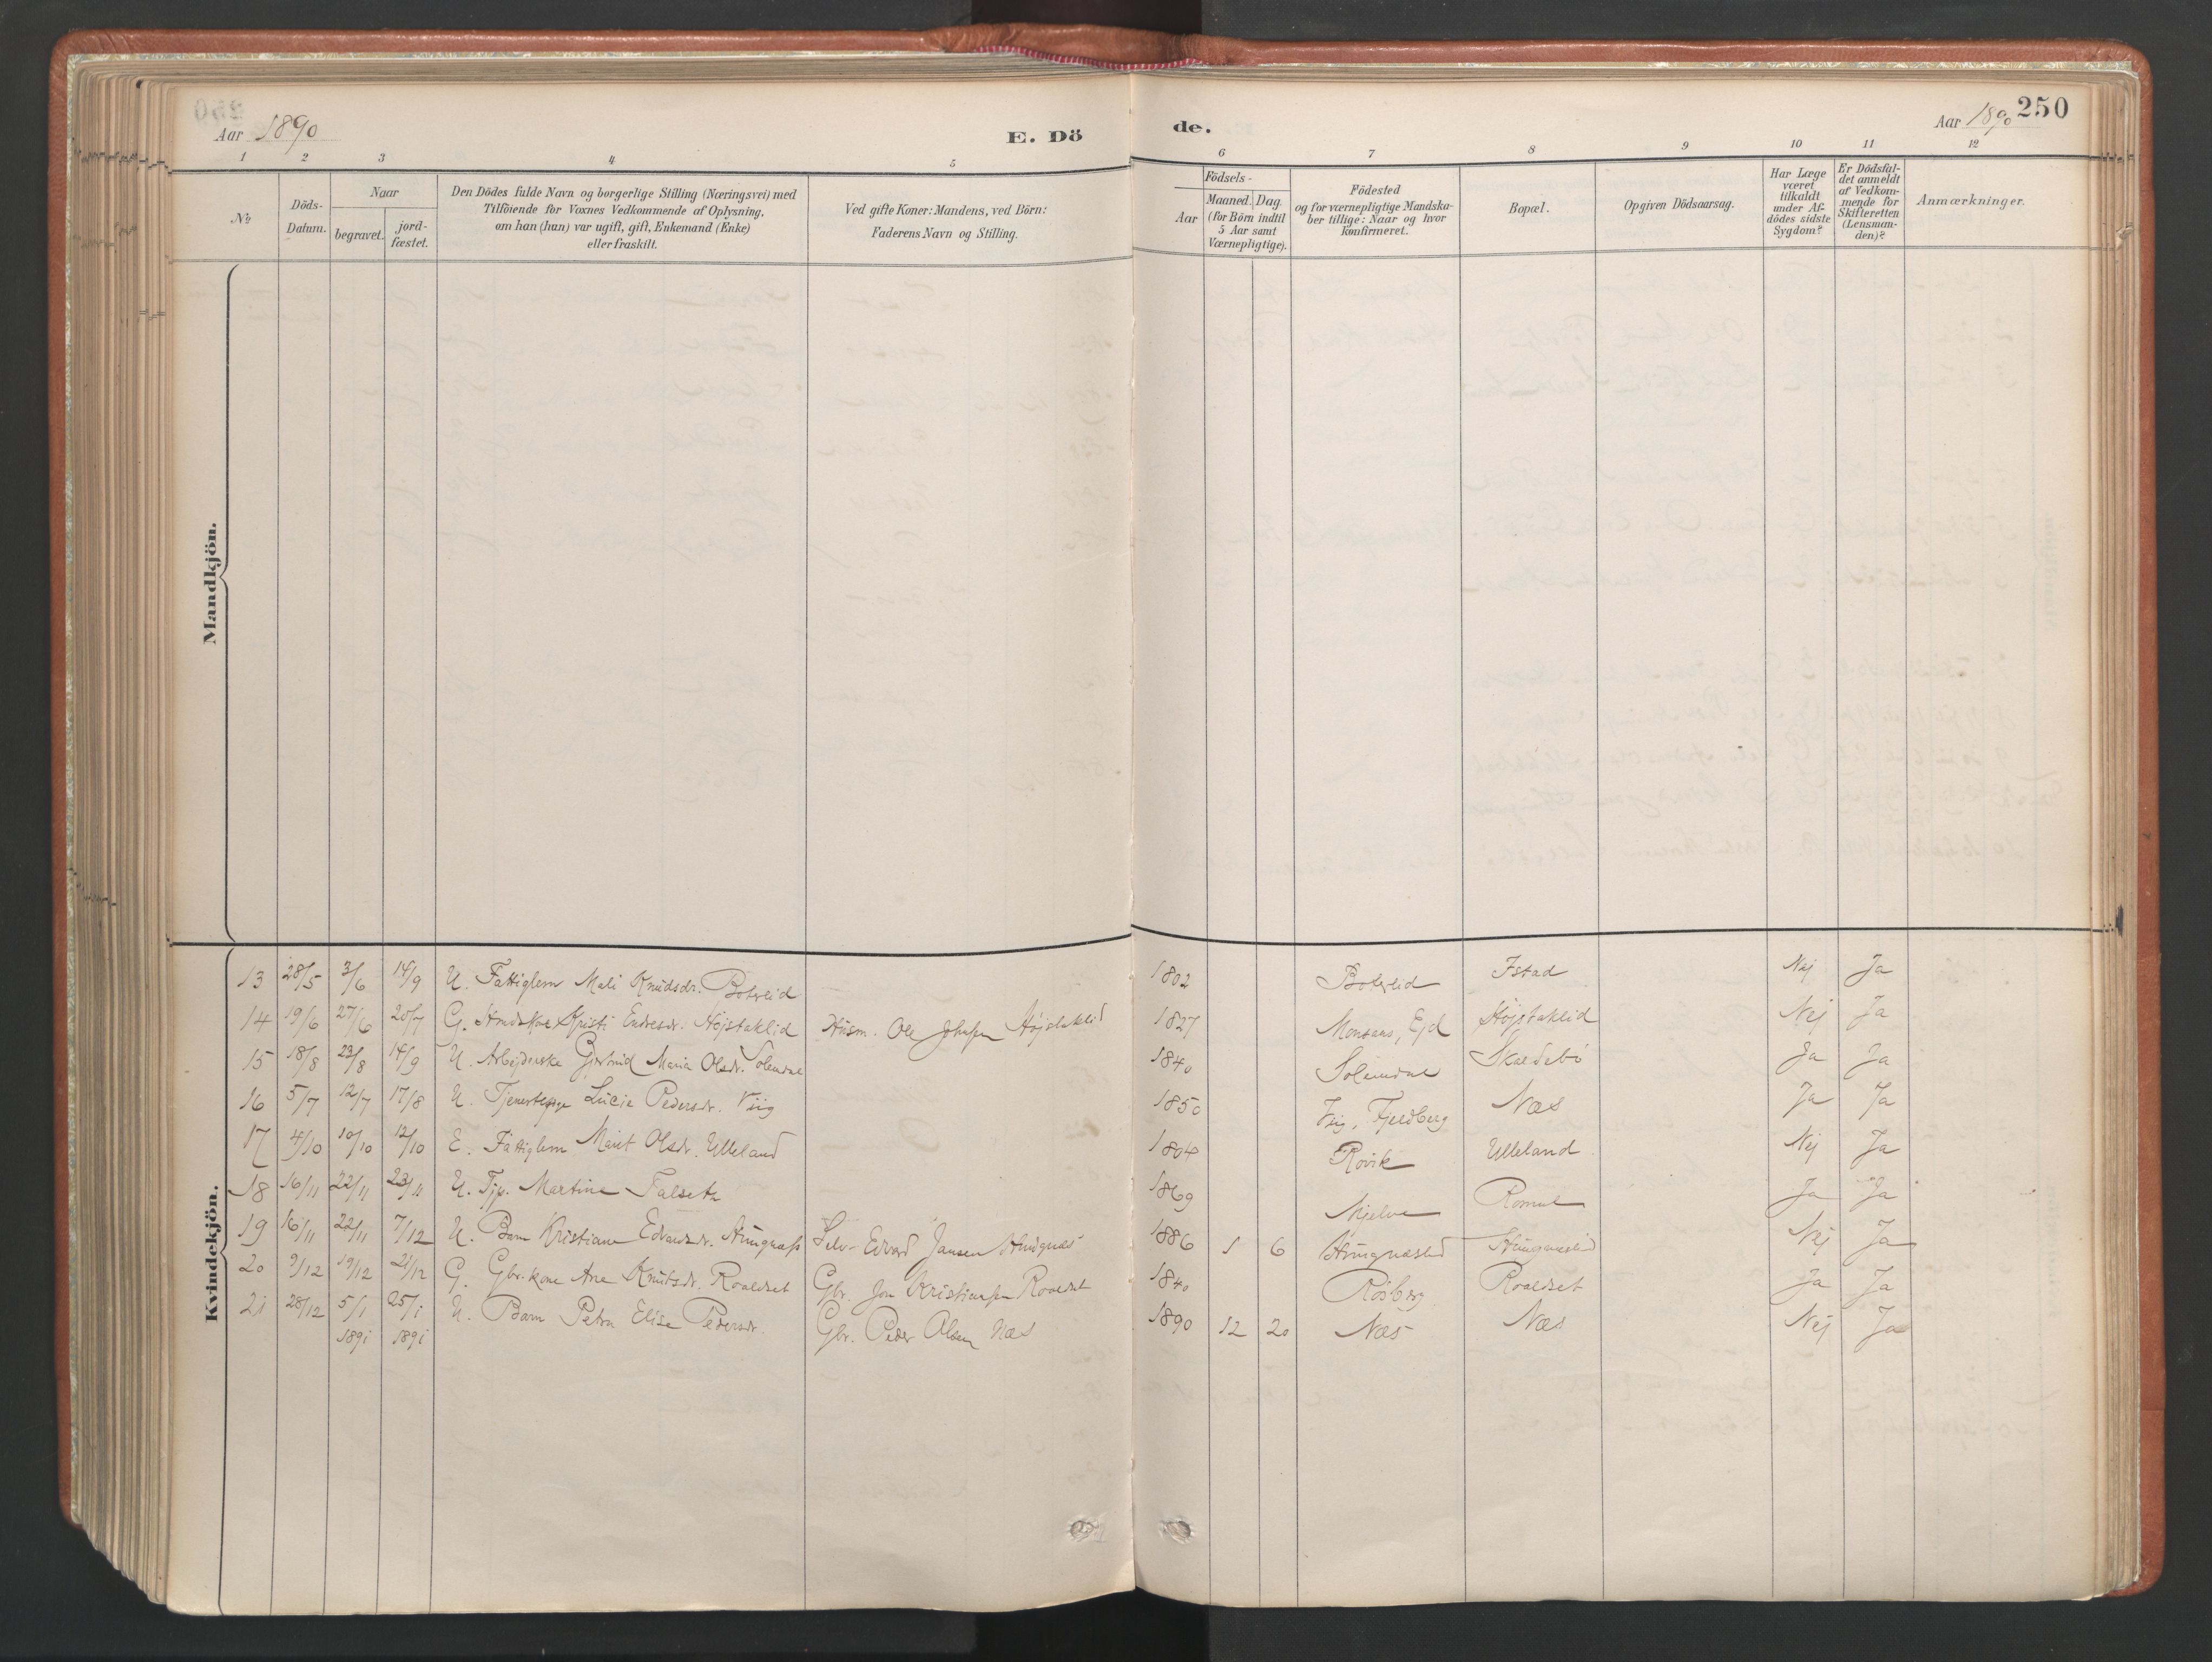 Aar 1890
E. Dö
de.
Aar 1890
250
1 2 3 4 5 6 7 8 9 10 11 12
No
Döds-Datum.
Naar
begravet.
jord-fæstet.
Den Dödes fulde Navn og borgerlige Stilling (Næringsvei) med
Tilföiende for Voxnes Vedkommende af Oplysning,
om han (hun) var ugift, gift, Enkemand (Enke)
eller fraskilt.
Ved gifte Koner: Mandens, ved Börn:
Faderens Navn og Stilling.
Födsels-
Aar
Maaned. Dag.
(for Börn indtil
5 Aar samt
Værnepligtige).
Födested
og for værnepligtige Mandska-
ber tillige: Naar og hvor
Konfirmeret.
Bopæl.
Opgiven Dödsaarsag.
Har Læge
været
tilkaldt
under Af-
dödes sidste
Sygdom?
Er Dödsfal-
det anmeldt
af Vedkom-
mende for
Skifteretten
(Lensman-
den)?
Anmærkninger.
Mandkjön.
Kvindekjön.
13 28/5 3/6 14/9 U. Fattiglem Mali Knudsdr. Boterlid 1802 Boterlid Istad Nej Ja
14 19/6 27/6 20/7 G. Kristi Endresdr. Højstaklid Husm. Ole Johnsen Højstaklid 1827 Ejd Højstaklid Nej Ja
15 18/8 23/8 14/9 U. Arbejderske Gjertrud Maria Olsdr. Solemdal 1840 Solemdal Skaldebø Ja Ja
16 5/7 12/7 17/8 U. Tjenestepige Lucie Pedersdr. Viig 1850 Viig, Fjeldberg Næs Ja Ja
17 4/10 10/10 12/10 E. Fattiglem Marit Olsdr. Ulleland 1804 Røvik Ulleland Nej Ja
18 16/11 22/11 23/11 U. Tjp. Martine Talseth 1869 Mjelve Ja Ja
19 16/11 22/11 7/12 U. Barn Kristiane Edvardsdr. Selv- Edvard Jansen 1886 1 6 Nej Ja
20 9/12 19/12 21/12 G. Gbr. kone Ane Knutsdr. Roaldset Gbr. Jon Kristiansen Roaldset 1840 Røsberg Roaldset Ja Ja
21 28/12 5/1 25/1 U. Barn Petra Elise Pedersdr. Gbr. Peder Olsen Næs 1890 12 20 Næs Næs Nej Ja
1891 1891